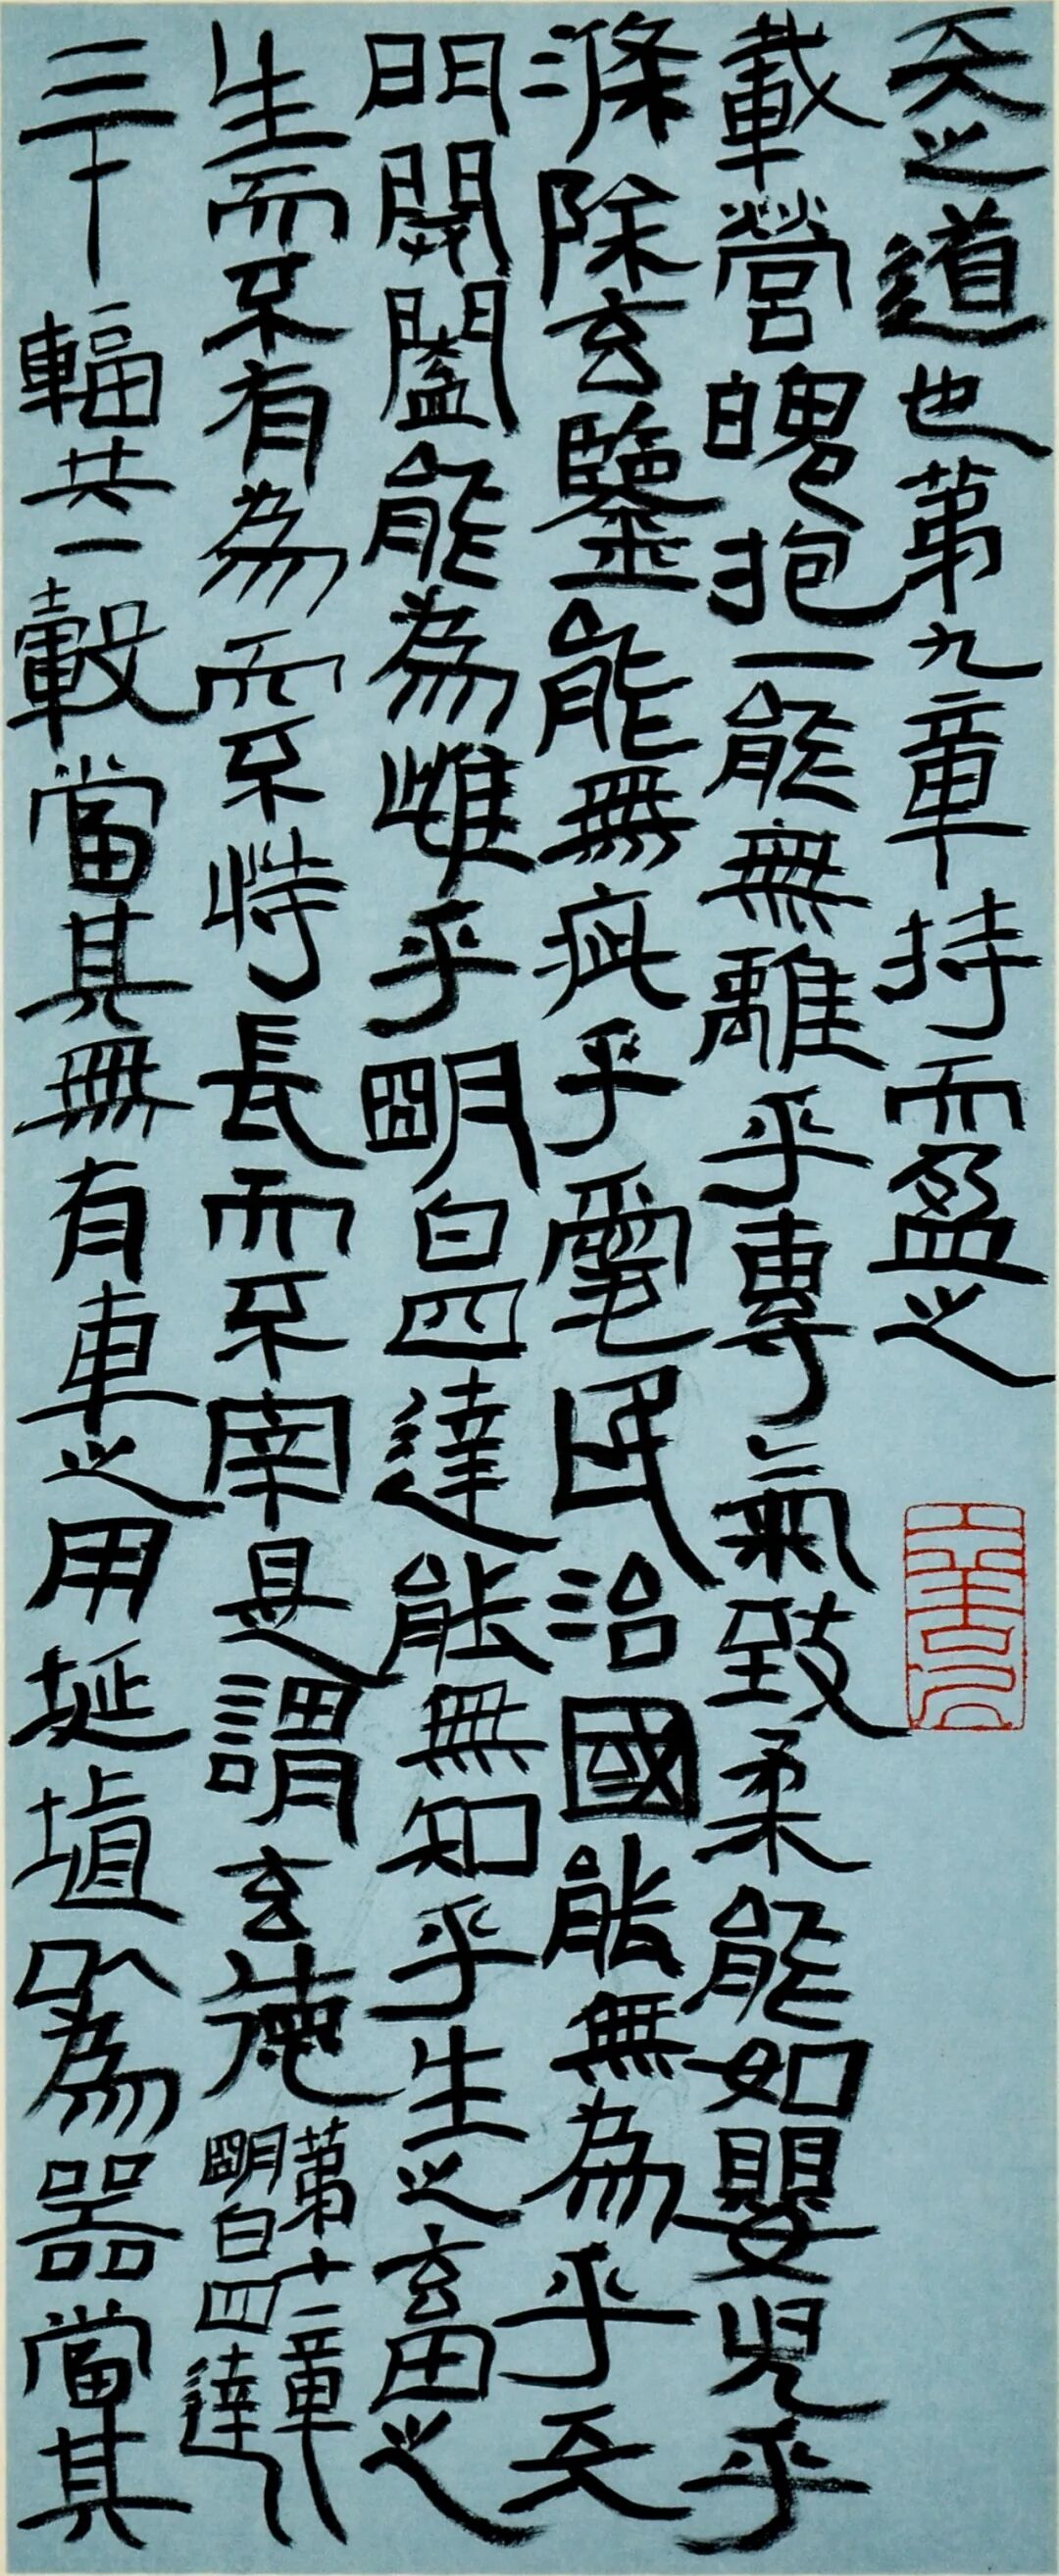 天之道也第九章持而盈之
載營魄抱一能無離乎專氣致柔能如嬰兒乎
滌除玄鑒能無疵乎愛民治國能無為乎天
門開闔能為雌乎明白四達能無知乎生之玄畜之
生而不有為而不恃長而不宰是謂玄德
第十章
明白四達
三十輻共一轂當其無有車之用埏埴以為器當其